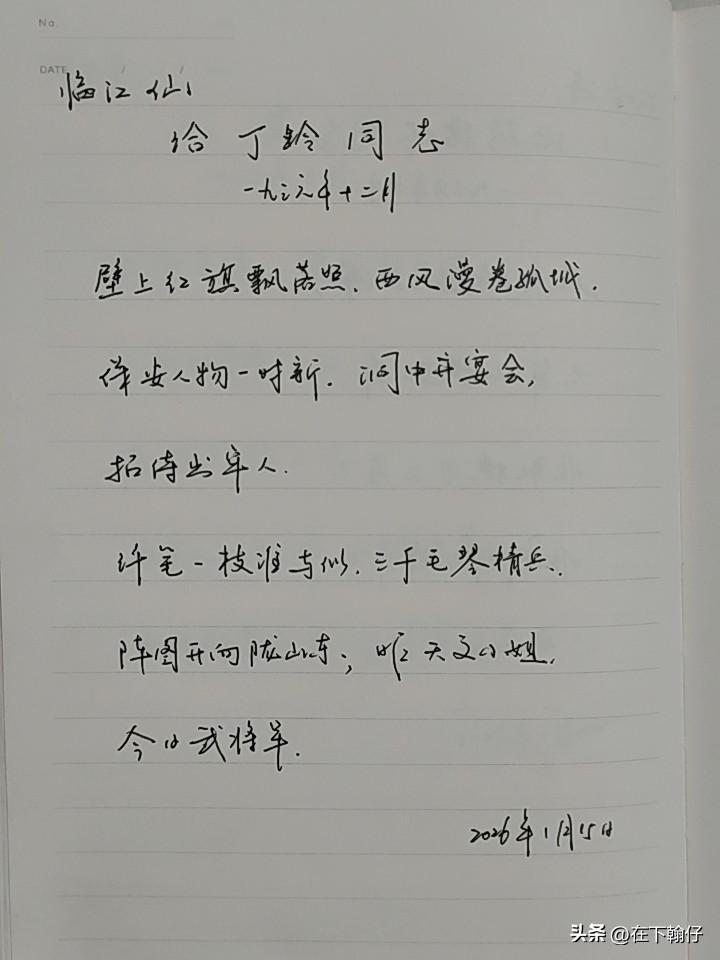 No.
DATE / /
临江仙
给丁铃同志
一九三六年十二月
壁上红旗飘落照、西风漫卷孤城.
保安人物一时新. 洞中开宴会,
招待出牢人.
纤笔一枝谁与似、三千毛瑟精兵、
阵图开向陇山东; 昨天文小姐,
今日武将军.
2026年1月15日
头条 @在下翰仔